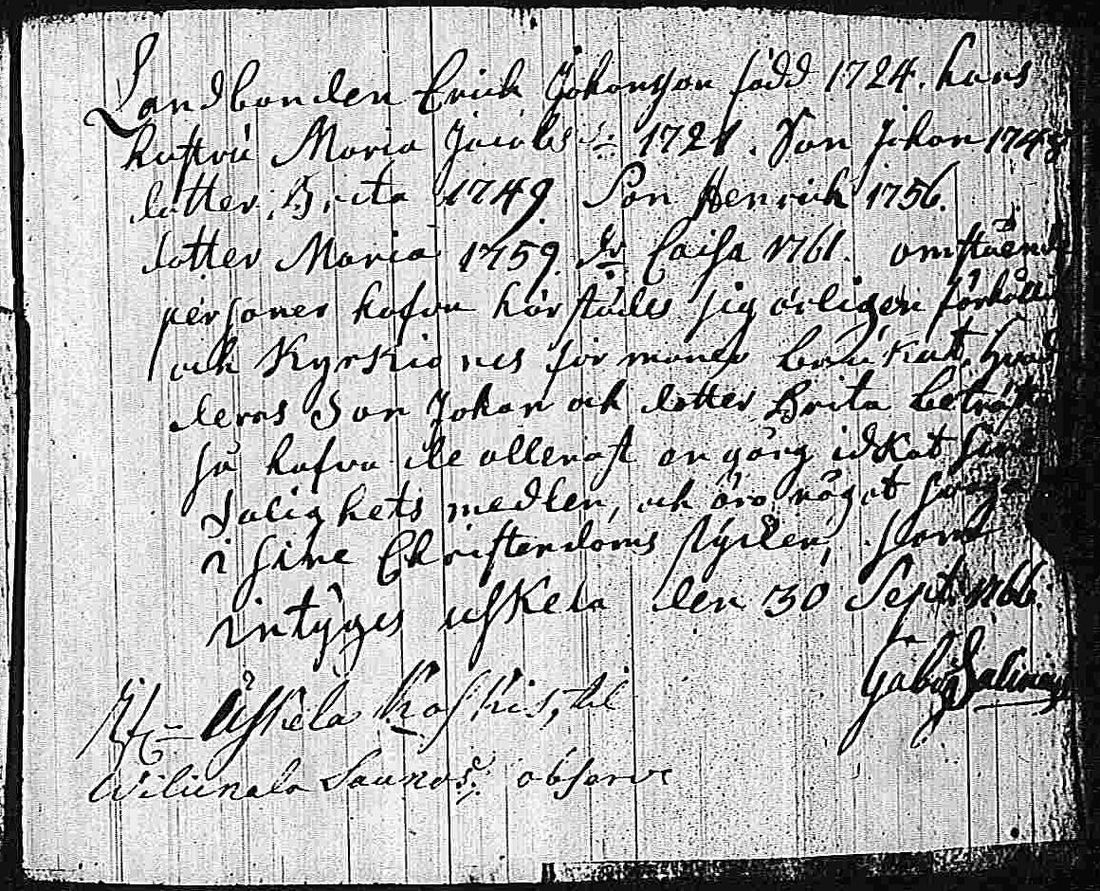 Landbonden Erick Johansson född 1724. hans
hustru Maria Jacobs dr 1721. Son Johan 1748
dotter Brita 1749. Son Henrich 1756.
dotter Maria 1759. dr Caisa 1761. omstående
personer hafva härstädes sig ärligen förhållit
och Kyrkiones förmoner brukat, hvad
deras Son Johan och dotter Brita beträffar
så hafva de allenast en gång idkat sine
Salighets medlen, och äro något svaga
i sine Christendoms stycken, som
intÿges uskela den 30 Sept. 1766.
Gabr. Salonius
Uskela Koskis, til
Wiluxela Saunos observ